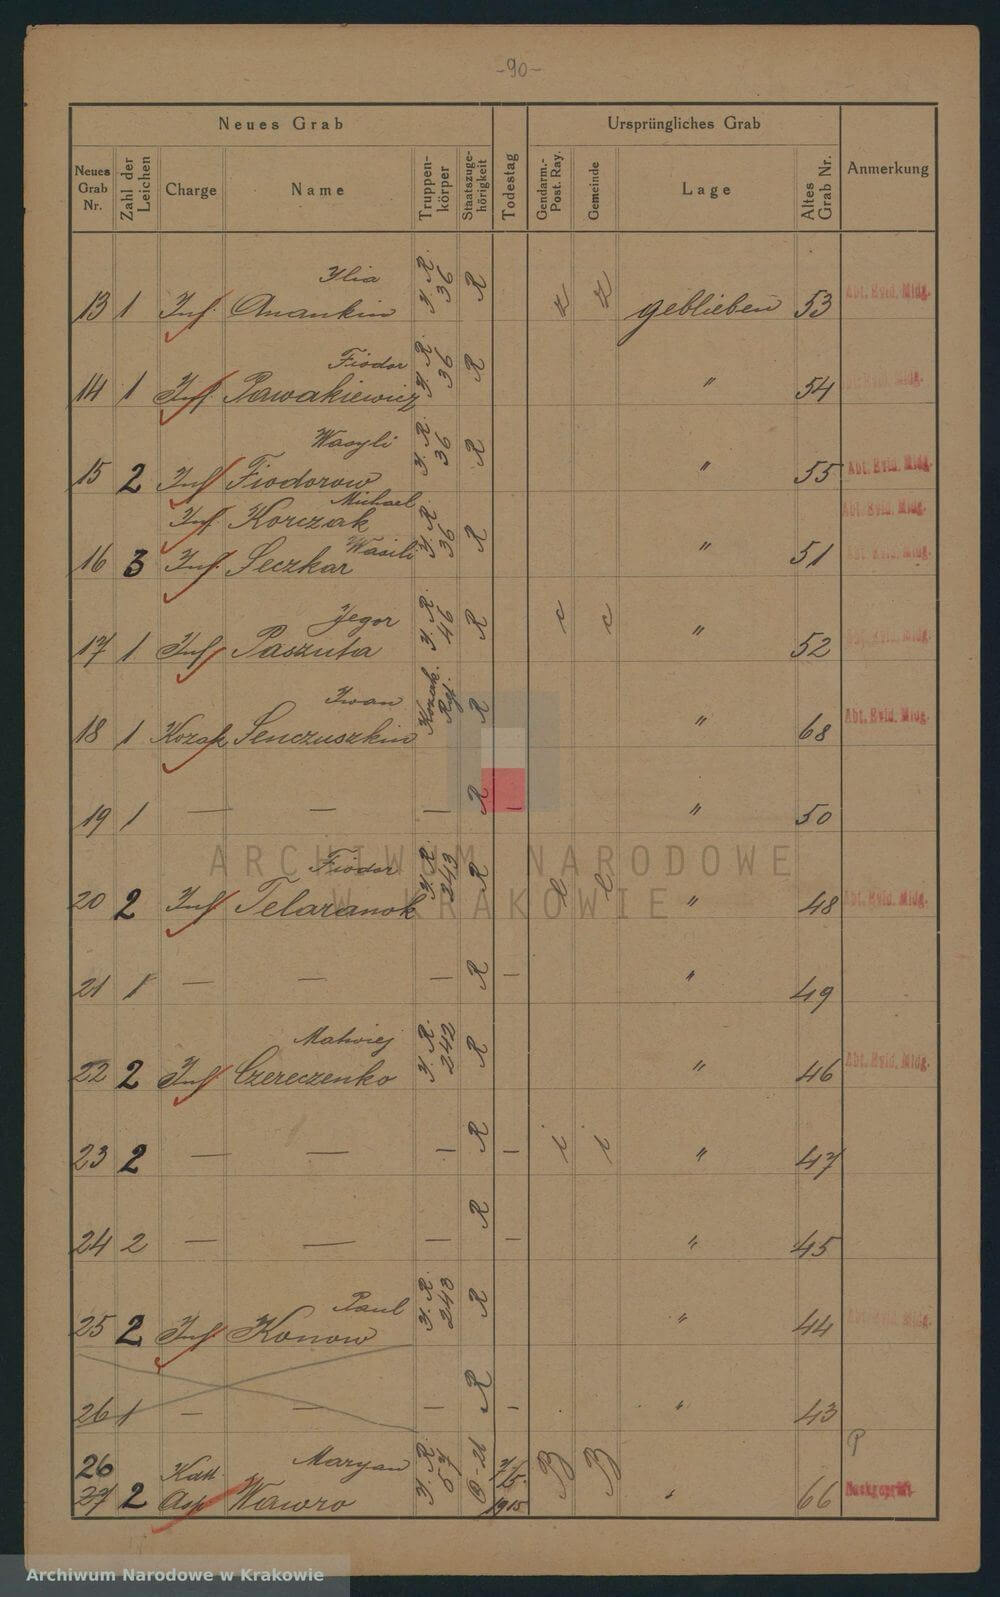 -90-
Neues Grab
Ursprüngliches Grab
Neues Grab Nr.
Zahl der Leichen
Charge
Name
Truppen-körper
Staatszuge-hörigkeit
Todestag
Gendarm.-Post. Ray.
Gemeinde
Lage
Altes Grab Nr.
Anmerkung
13 1 Inf. Ilia Anankin I. R. 36 R z z geblieben 53 Abt. Evid. Mldg.
14 1 Inf Fiodor Pawakiewicz I. R. 36 R " 54 Abt. Evid. Mldg.
15 2 Inf Wasyli Fiodorow I. R. 36 R " 55 Abt. Evid. Mldg.
Inf Michael Korczak Abt. Evid. Mldg.
16 3 Inf. Wasili Seczkar I. R. 36 R " 51 Abt. Evid. Mldg.
17 1 Inf Jegor Paszuta I. R. 46 R c c " 52 Abt. Evid. Mldg.
18 1 Kozak Iwan Senczuszkin Kozak. Rgt. R " 68 Abt. Evid. Mldg.
19 1 — — — R — " 50
20 2 Inf Fiodor Telaranok I. R. 243 R e e " 48 Abt. Evid. Mldg.
21 1 — — — R — " 49
22 2 Inf Matwiej Czereczenko I. R. 242 R " 46 Abt. Evid. Mldg.
23 2 — — — R — i i " 47
24 2 — — — R — " 45
25 2 Inf Paul Konow I. R. 243 R " 44 Abt. Evid. Mldg.
26 1 — — — R — " 43
26
27 2 Asp Maryan Wawro I. R. 57 7/5. 1915 B B " 66 P Nachgeprüft
ARCHIWUM NARODOWE
W KRAKOWIE
Archiwum Narodowe w Krakowie